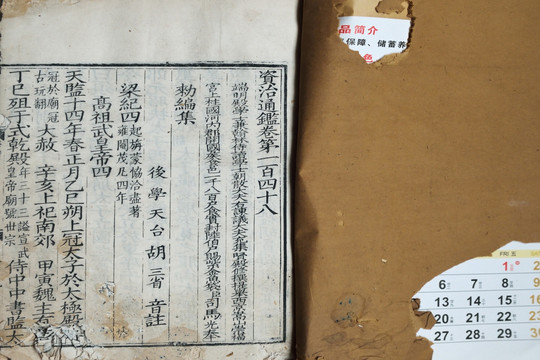 資治通鑑卷第一百四十八
端明殿學士兼翰林侍讀學士朝散大夫右諫議大夫充集賢殿修撰提舉西京嵩山崇
宮上柱國河內郡開國侯食邑一千八百戶食實封陸伯戶賜紫金魚袋臣司馬光奉
勑編集
後學天台胡三省音註
梁紀四起旃蒙協洽盡著雍閹茂凡四年
高祖武皇帝四
天監十四年春正月乙巳朔上冠太子於太極殿
冠於廟冠古玩翻大赦 辛亥上祀南郊 甲寅魏主有
丁巳殂于式乾殿年三十三諡宣武皇帝廟號世宗侍中中書監太
品简介
保障、储蓄养
色
FRI 五
1 2
6 7 8 9
13 14 15 16
20 21 22 23
27 28 29 30